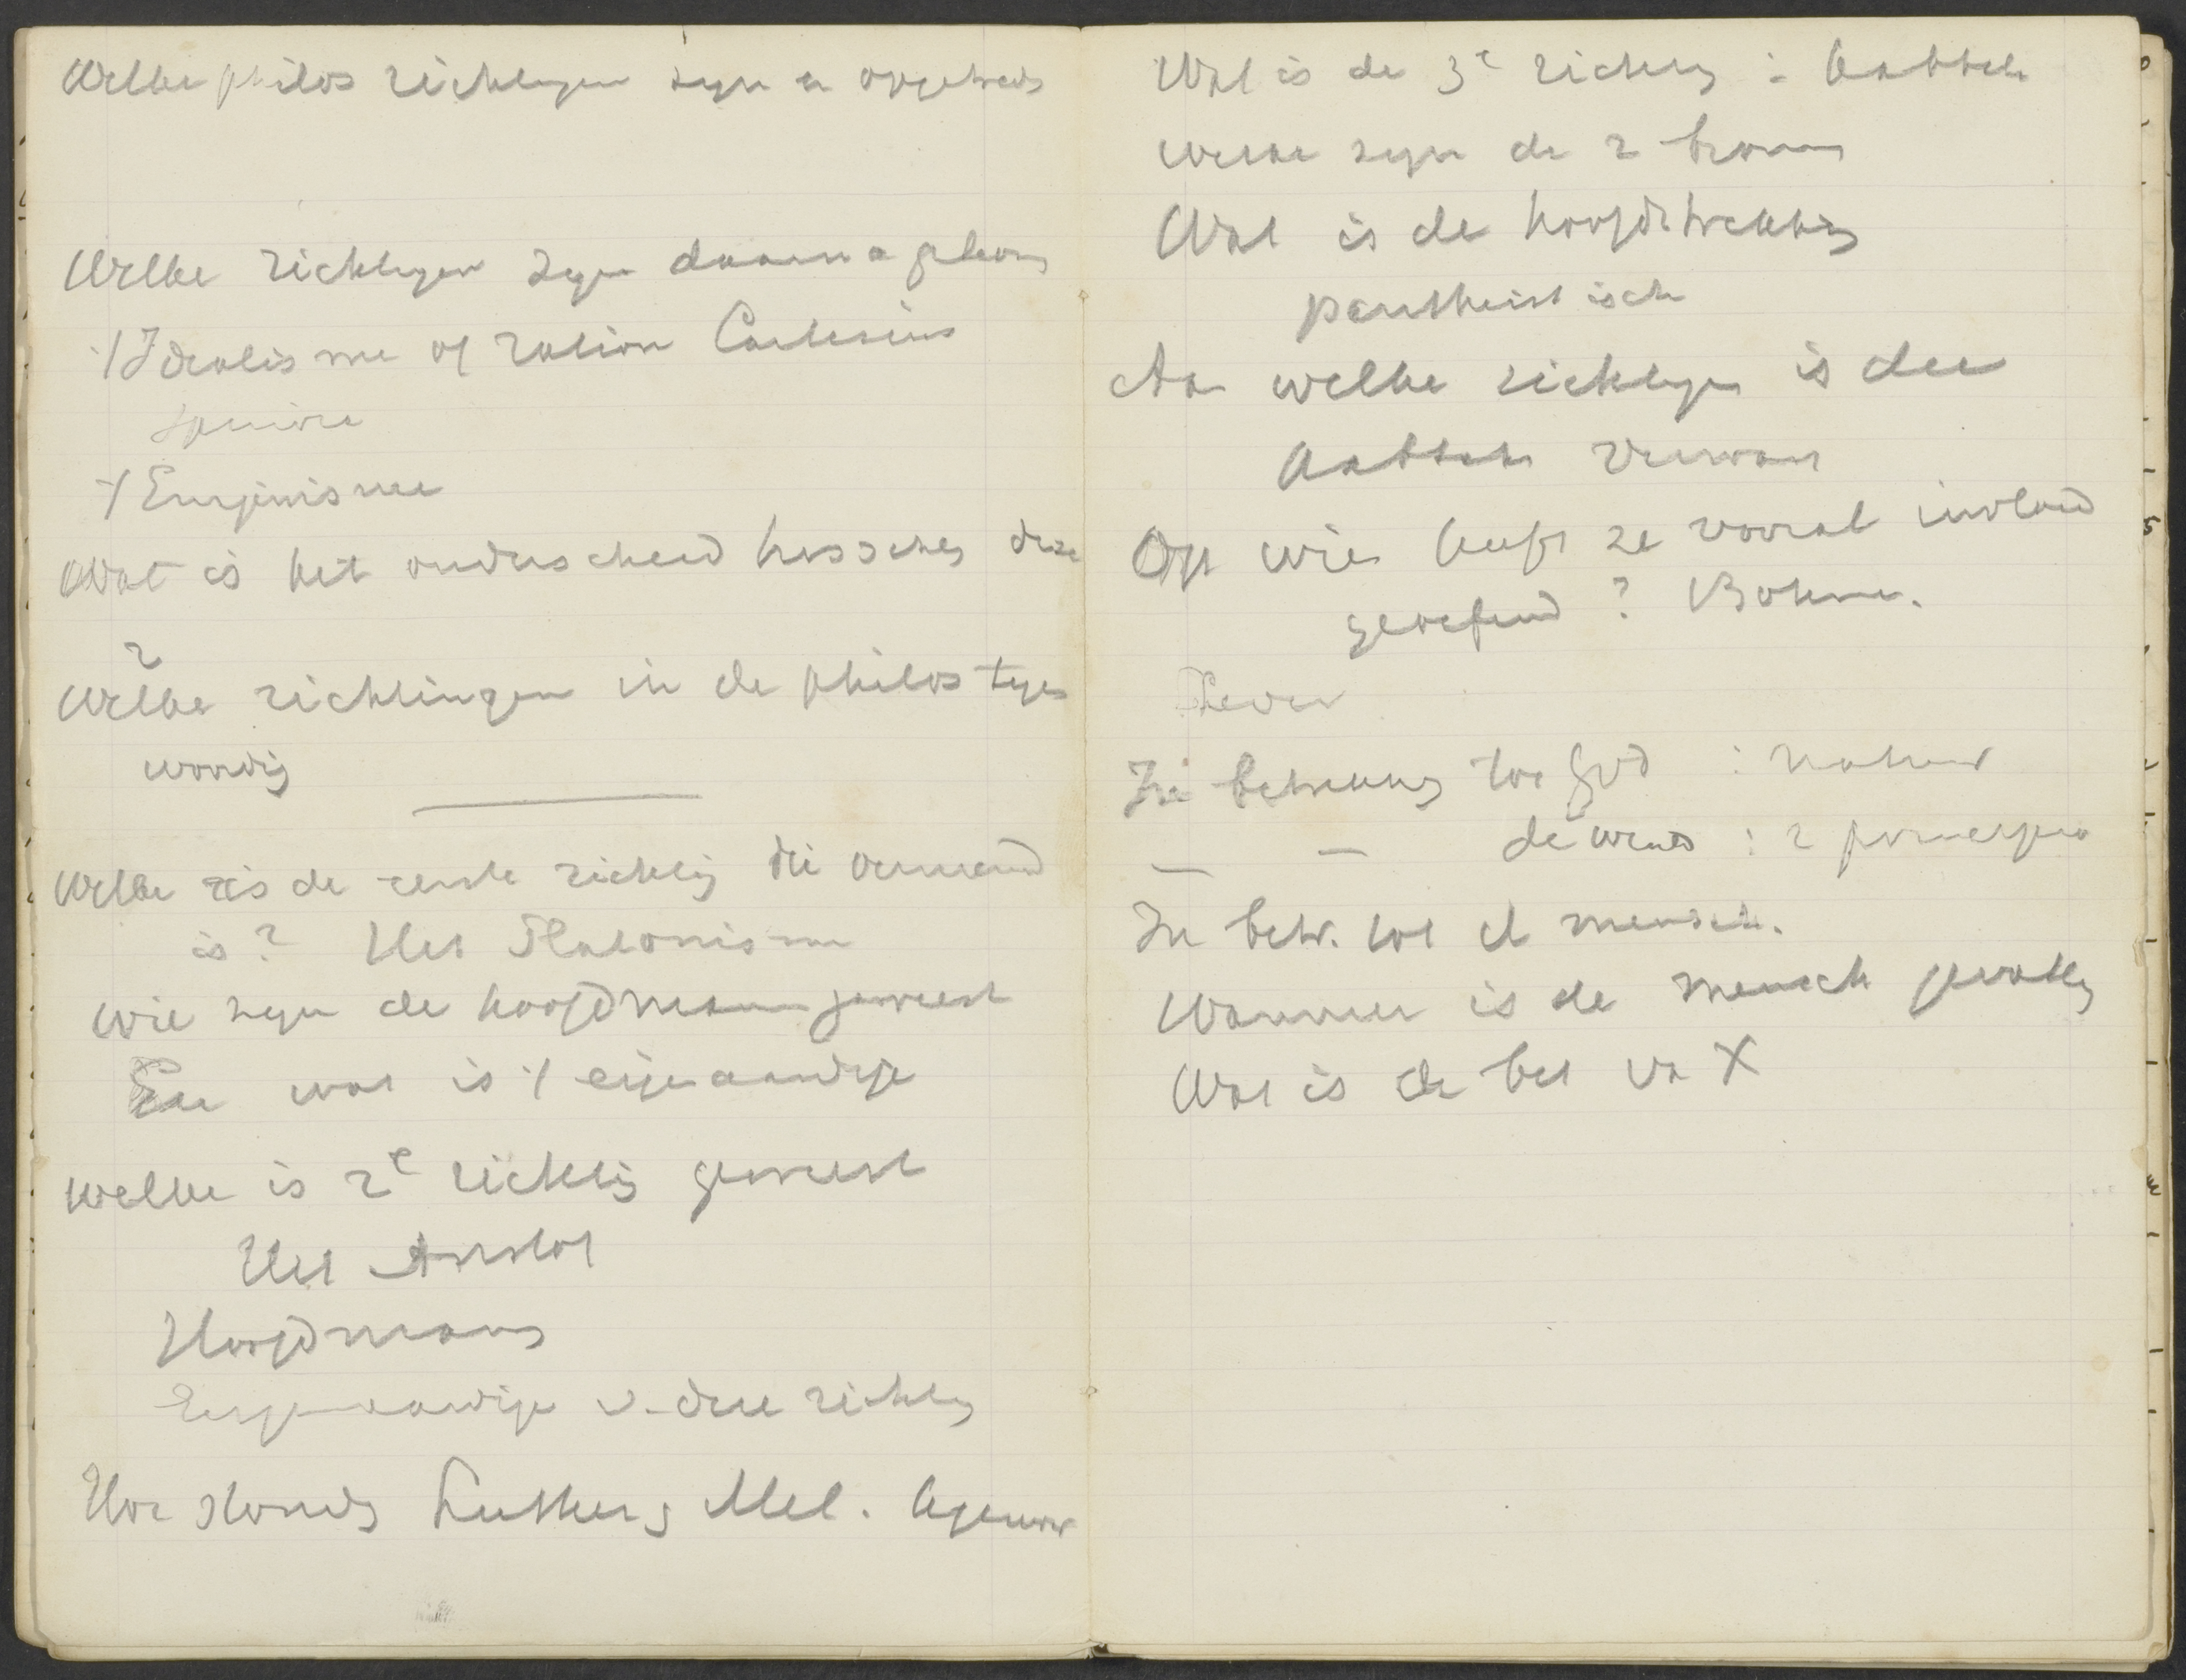 Welke philos richtingen zijn er opgetreden
Welke richtingen zijn daarna gekomen
't Idealisme of ration Cartesius
Spinoza
't Empirisme
Wat is het onderscheid tusschen deze
2
Welke richtingen in de philos tegen
woordig
Welke is de eerste richting die vernieuwd
is? Het Platonisme
Wie zijn de hoofdmannen geweest
En wat is 't eigenaardige
Welke is 2e richting geweest
Het Aristot
Hoofdmans
Eigenaardige v. deze richting
Hoe stonden Luther, Mel. tegenover
Wat is de 3e richting : Kabbala
Welke zijn de 2 bronnen
Wat is de hoofdstrekking
pantheistisch
Aan welke richtingen is die
Kabbala verwant
Op wie heeft ze vooral invloed
geoefend? Böhme.
In betrekking tot God : natuur
— — de wereld : 2 principia
In betr. tot d mensch.
Wanneer is de mensch gevallen
Wat is de bet van X